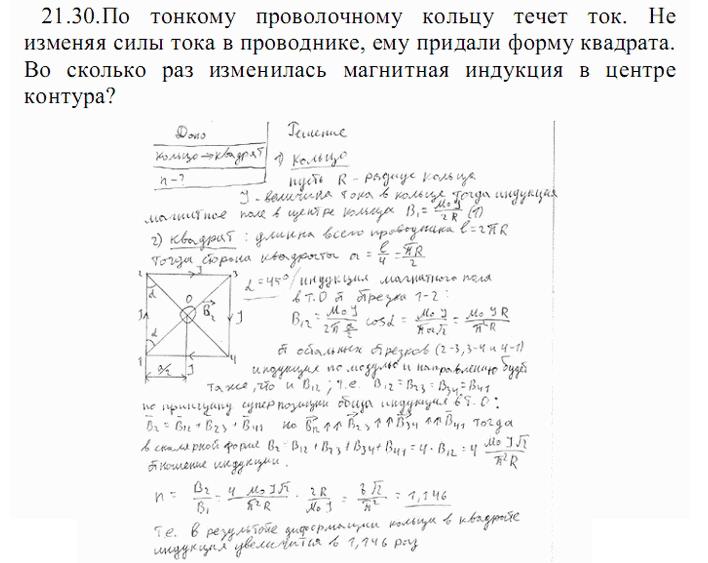 21.30.По тонкому проволочному кольцу течет ток. Не
изменяя силы тока в проводнике, ему придали форму квадрата.
Во сколько раз изменилась магнитная индукция в центре
контура?
Дано
Решение
кольцо → квадрат
n - ?
1) кольцо
пусть R - радиус кольца
J - величина тока в кольце тогда индукция
магнитное поле в центре кольца B₁ = μ₀J/2R (1)
2) квадрат : длинна всего проводника l = 2πR
тогда сторона квадрата a = l/4 = πR/2
2 J 3
α = 45° / индукция магнитного поля
в т.O от отрезка 1-2 :
α O B₂
J J
B₁₂ = μ₀J/2π a/2 cosα = μ₀J/πa√2 = μ₀JR/π²R
α
1 J 4
a/2
от остальных отрезков (2-3, 3-4 и 4-1)
индукция по модулю и направлению будет
также, что и B₁₂ ; т.е. B₁₂ = B₂₃ = B₃₄ = B₄₁
по принципу суперпозиции общая индукция в т.O:
B₂ = B₁₂ + B₂₃ + B₄₁ но B₁₂ ↑↑ B₂₃ ↑↑ B₃₄ ↑↑ B₄₁ тогда
в скалярной форме B₂ = B₁₂ + B₂₃ + B₃₄ + B₄₁ = 4 · B₁₂ = 4 μ₀J√2/π²R
отношение индукции.
n = B₂/B₁ = 4 μ₀J√2/π²R · 2R/μ₀J = 8√2/π² = 1,146
т.е. в результате диформации кольца в квадрате
индукция увеличится в 1,146 раз